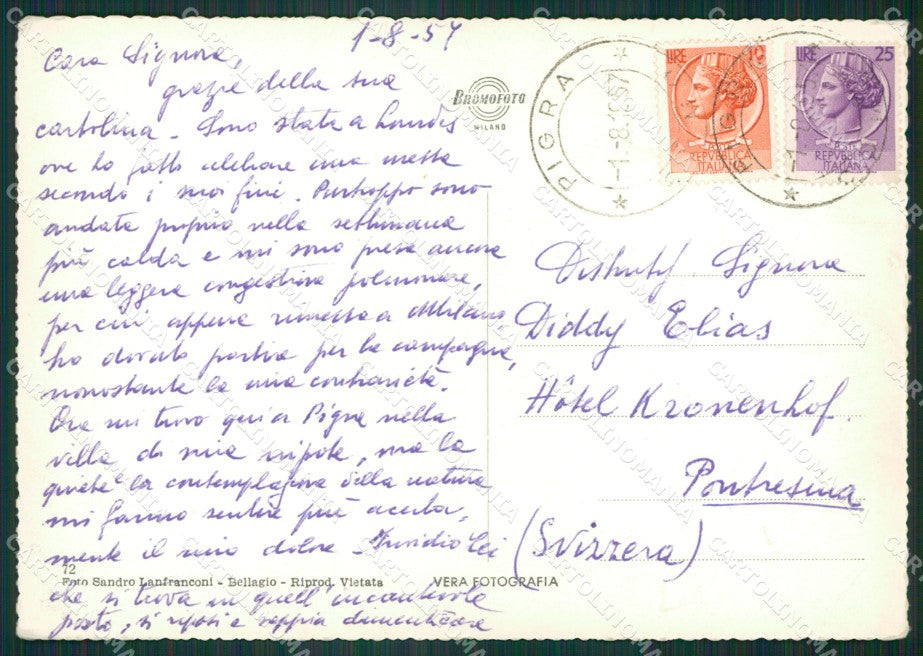 1-8-57
Cara Signora,
grazie della sua
cartolina. Sono stata a Lourdes
ove ho fatto celebrare una messa
secondo i suoi fini. Purtroppo sono
andata proprio nella settimana
più calda e mi sono presa ancora
una leggera congestione polmonare,
per cui appena rimessa a Milano
ho dovuto partire per la campagna,
nonostante la mia contrarietà.
Ora mi trovo qui a Pigra nella
villa di mia nipote, ma la
quiete e la contemplazione della natura
mi fanno sentire più acerba,
mente il mio dolore. Invidio Lei
che si trova in quell'incantevole
posto, si riposi e sappia dimenticare
72
Foto Sandro Lanfranconi - Bellagio - Riprod. Vietata
VERA FOTOGRAFIA
BROMOFOTO
MILANO
PIGRA
1-8.1957
LIRE 10
REPVBBLICA
ITALIANA
LIRE 25
REPVBBLICA
ITALIANA
Signora
Diddy Elias
Hôtel Kronenhof
Pontresina
(Svizzera)
CARTOLINOMANIA